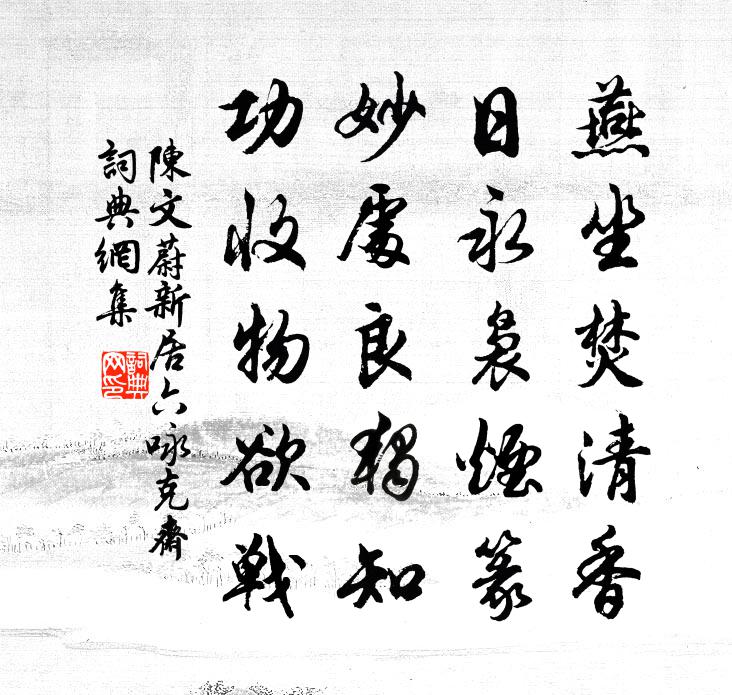 燕坐焚清香
日永裊煙篆
妙處良獨知
功收物欲戰
陳文蔚新居六咏克齋
詞典網集
詞典網印